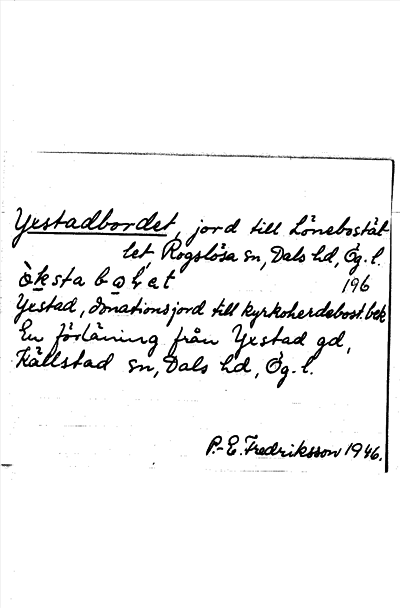 Yxstadbordet, jord till Lönebostät
let, Rogslösa sn, Dals hd, Ög. l.
ö̀kstabo̱ṙet 196
Yxstad, donationsjord till kyrkoherdebost. bek
En förläning från Yxstad gd,
Källstad sn, Dals hd, Ög. l.
P.-E. Fredriksson 1946.